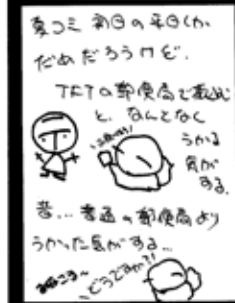 夏コミ 初日の平日しか
だめだろうけど.
TFTの郵便局で振込む
と、なんとなく
うかる
気が
する.
昔…普通の郵便局より
うかった気がする…
どうですか?!